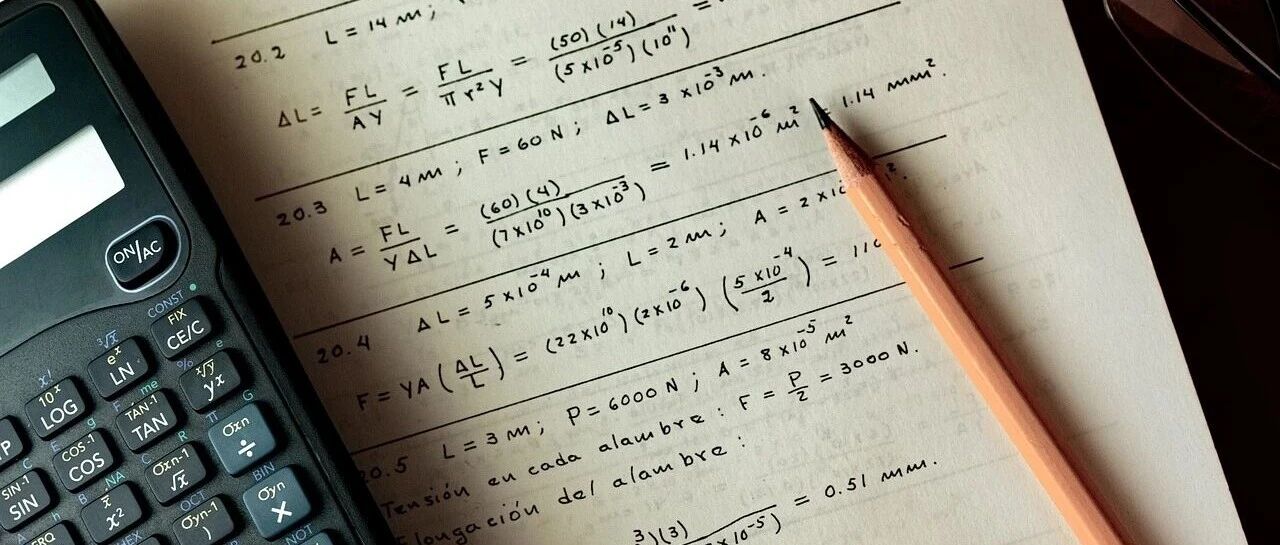 20.2 L = 14 m ;
ΔL = FL / AY = FL / π r² Y = (50) (14) / (5 x 10⁻⁵) (10¹¹) =
20.3 L = 4 m ; F = 60 N ; ΔL = 3 x 10⁻³ m.
A = FL / Y ΔL = (60) (4) / (7 x 10¹⁰) (3 x 10⁻³) = 1.14 x 10⁻⁶ m² = 1.14 mm².
20.4 ΔL = 5 x 10⁻⁴ m ; L = 2 m ; A = 2 x
F = YA (ΔL / L) = (22 x 10¹⁰) (2 x 10⁻⁶) (5 x 10⁻⁴ / 2) = 110
20.5 L = 3 m ; P = 6000 N ; A = 8 x 10⁻⁵ m²
Tensión en cada alambre : F = P / 2 = 3000 N.
Elongación del alambre :
)(3) / x 10⁻⁵) = 0.51 mm.
ON/AC
CONST
FIX
CE/C
³√x
eˣ
LN
%
e
ˣ√y
yx
x!
10ˣ
LOG
me
TAN⁻¹
TAN
π
G
σxn
÷
g
COS⁻¹
COS
R
σxn-1
√x
C
SIN⁻¹
SIN
h
NA
x̄
x²
OCT
σyn-1
)
BIN
σyn
×
HEX
NOT